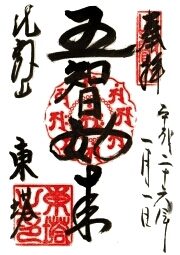 奉拝
平成二十六年
一月一日
五智如来
比叡山
東塔